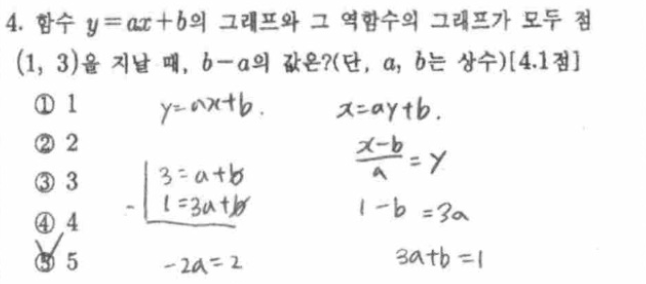 4. 함수 y=ax+b의 그래프와 그 역함수의 그래프가 모두 점
(1, 3)을 지날 때, b-a의 값은?(단, a, b는 상수)[4.1점]
① 1
② 2
③ 3
④ 4
⑤ 5
y=ax+b.
3=a+b
- 1=3a+b
-2a=2
x=ay+b.
(x-b)/a=y
1-b=3a
3a+b=1